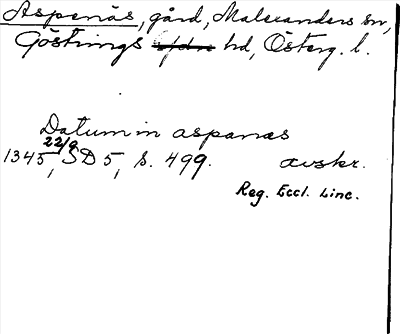 Aspenäs, gård, Malexanders sn,
Göstrings hd, Österg. l.
Datum in aspanæs
1345 22/9, SD 5, s. 499. avskr.
Reg. Eccl. Linc.